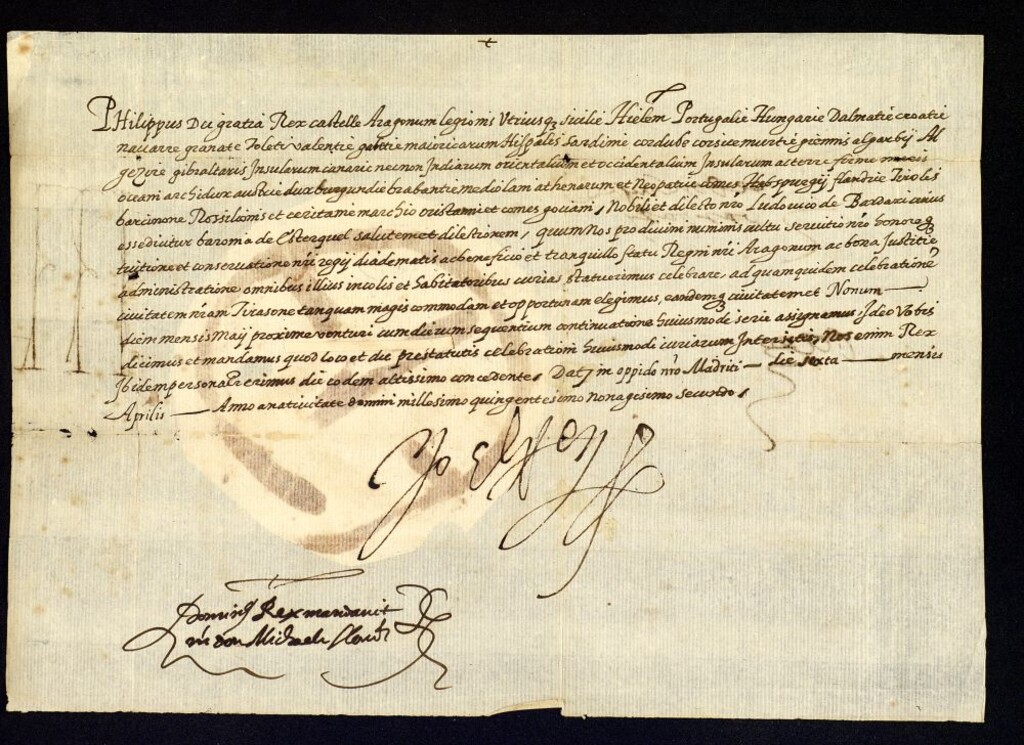 PHilippus Dei gratia Rex castelle Aragonum legionis Utriusq; sicilie Hierlem Portugalie Hungarie Dalmatie croatie
navarre granate Toleti Valentie gallitie maioricarum Hispalis Sardinie cordube corsice murtie giennis algarbij Al
gezire gibraltaris Insularum canarie necnon Indiarum orientalium et occidentalium Insularum ac terre firme maris
oceani archidux austrie dux burgundie brabantie mediolani athenarum et Neopatrie comes Habspurgij flandrie Tirolis
barcinone Rossilionis et ceritanie marchio oristanni et comes gociani, Nobili et dilecto nro Ludovico de Bardaxi cuius
esse dicitur baronia de Esterquel salutem et dilectionem, quum Nos pro divini numinis cultu servitio nro honoreq;
tuitione et conservatione nri regij diadematis ac beneficio et tranquillo statu Regni nri Aragonum ac bona Justitie
administratione omnibus illius incolis et habitatoribus curias statuerimus celebrare, ad quam quidem celebratione
civitatem nram Tirasone tanquam magis commodam et opportunam elegimus, eandemq; civitatem et Nonum
diem mensis Maij proxime venturi cum dierum sequentium continuatione huiusmodi serie assignamus, Ideo Vobis
dicimus et mandamus quod loco et die prestatutis celebrationi huiusmodi curiarum Intersitis, Nos enim Rex
Ibidem personaliter erimus die eodem altissimo concedente, Dat; in oppido nro Madriti — die sexta — mensis
Aprilis — Anno a nativitate domini millesimo quingentesimo nonagesimo secundo,
Yo el Rey
Dominus Rex mandavit
mi don Michaeli Clavero